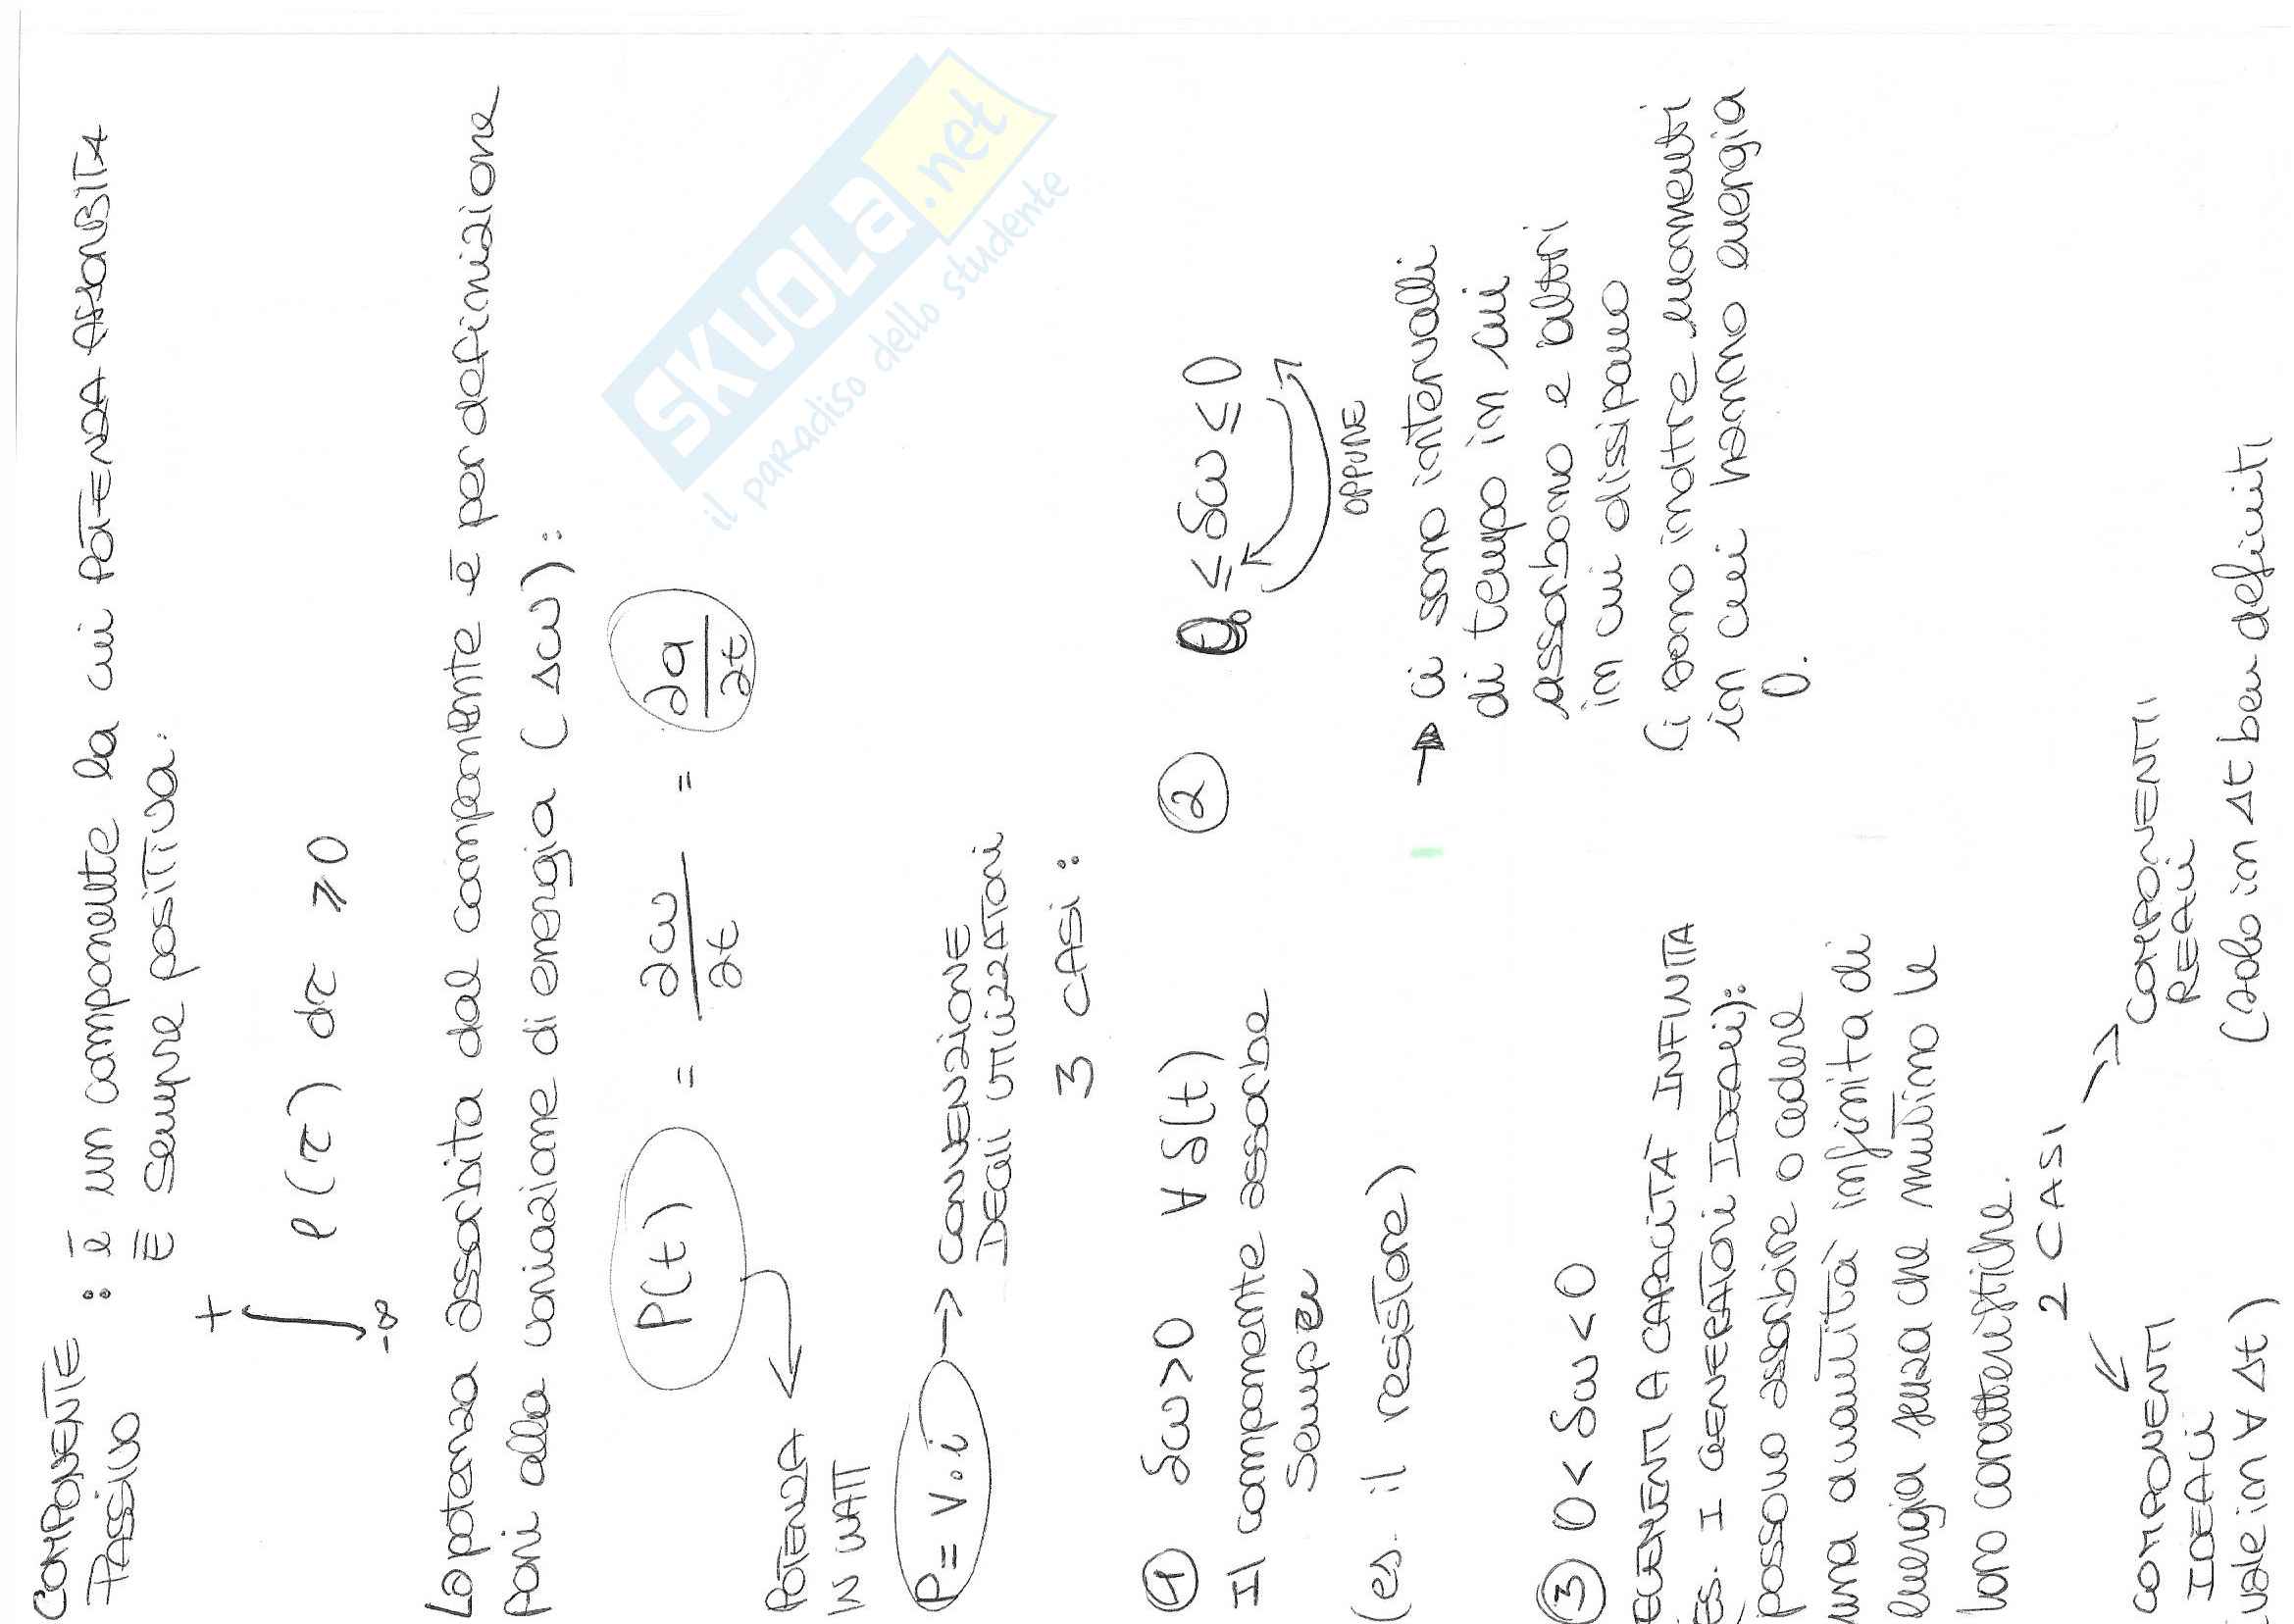 COMPONENTE PASSIVO : è un componente la cui POTENZA ASSORBITA
È sempre positiva:
∫ -∞ t P(τ) dτ ≥ 0
La potenza assorbita dal componente è per definizione
pari alla variazione di energia (Δω):
P(t) = ∂ω/∂t = ∂q/∂t
POTENZA
IN WATT
P = V·i → CONVENZIONE
DEGLI UTILIZZATORI
3 CASI:
① δω>0 ∀ δ(t)
Il componente assorbe
sempre
(es. il resistore)
② 0 ≤ δω ≤ 0
OPPURE
→ ci sono intervalli
di tempo in cui
assorbono e altri
in cui disipano
Ci sono inoltre momenti
in cui hanno energia
0.
③ 0 < δω < 0
ELEMENTI A CAPACITÀ INFINITA
ES. I GENERATORI IDEALI):
possono assorbire o cedere
una quantità infinita di
energia senza che mutino le
loro caratteristiche.
2 CASI
COMPONENTI
IDEALI
(vale in ∀ Δt)
COMPONENTI
REALI
(solo in Δt ben definiti
SKUOLA.net
il paradiso dello studente